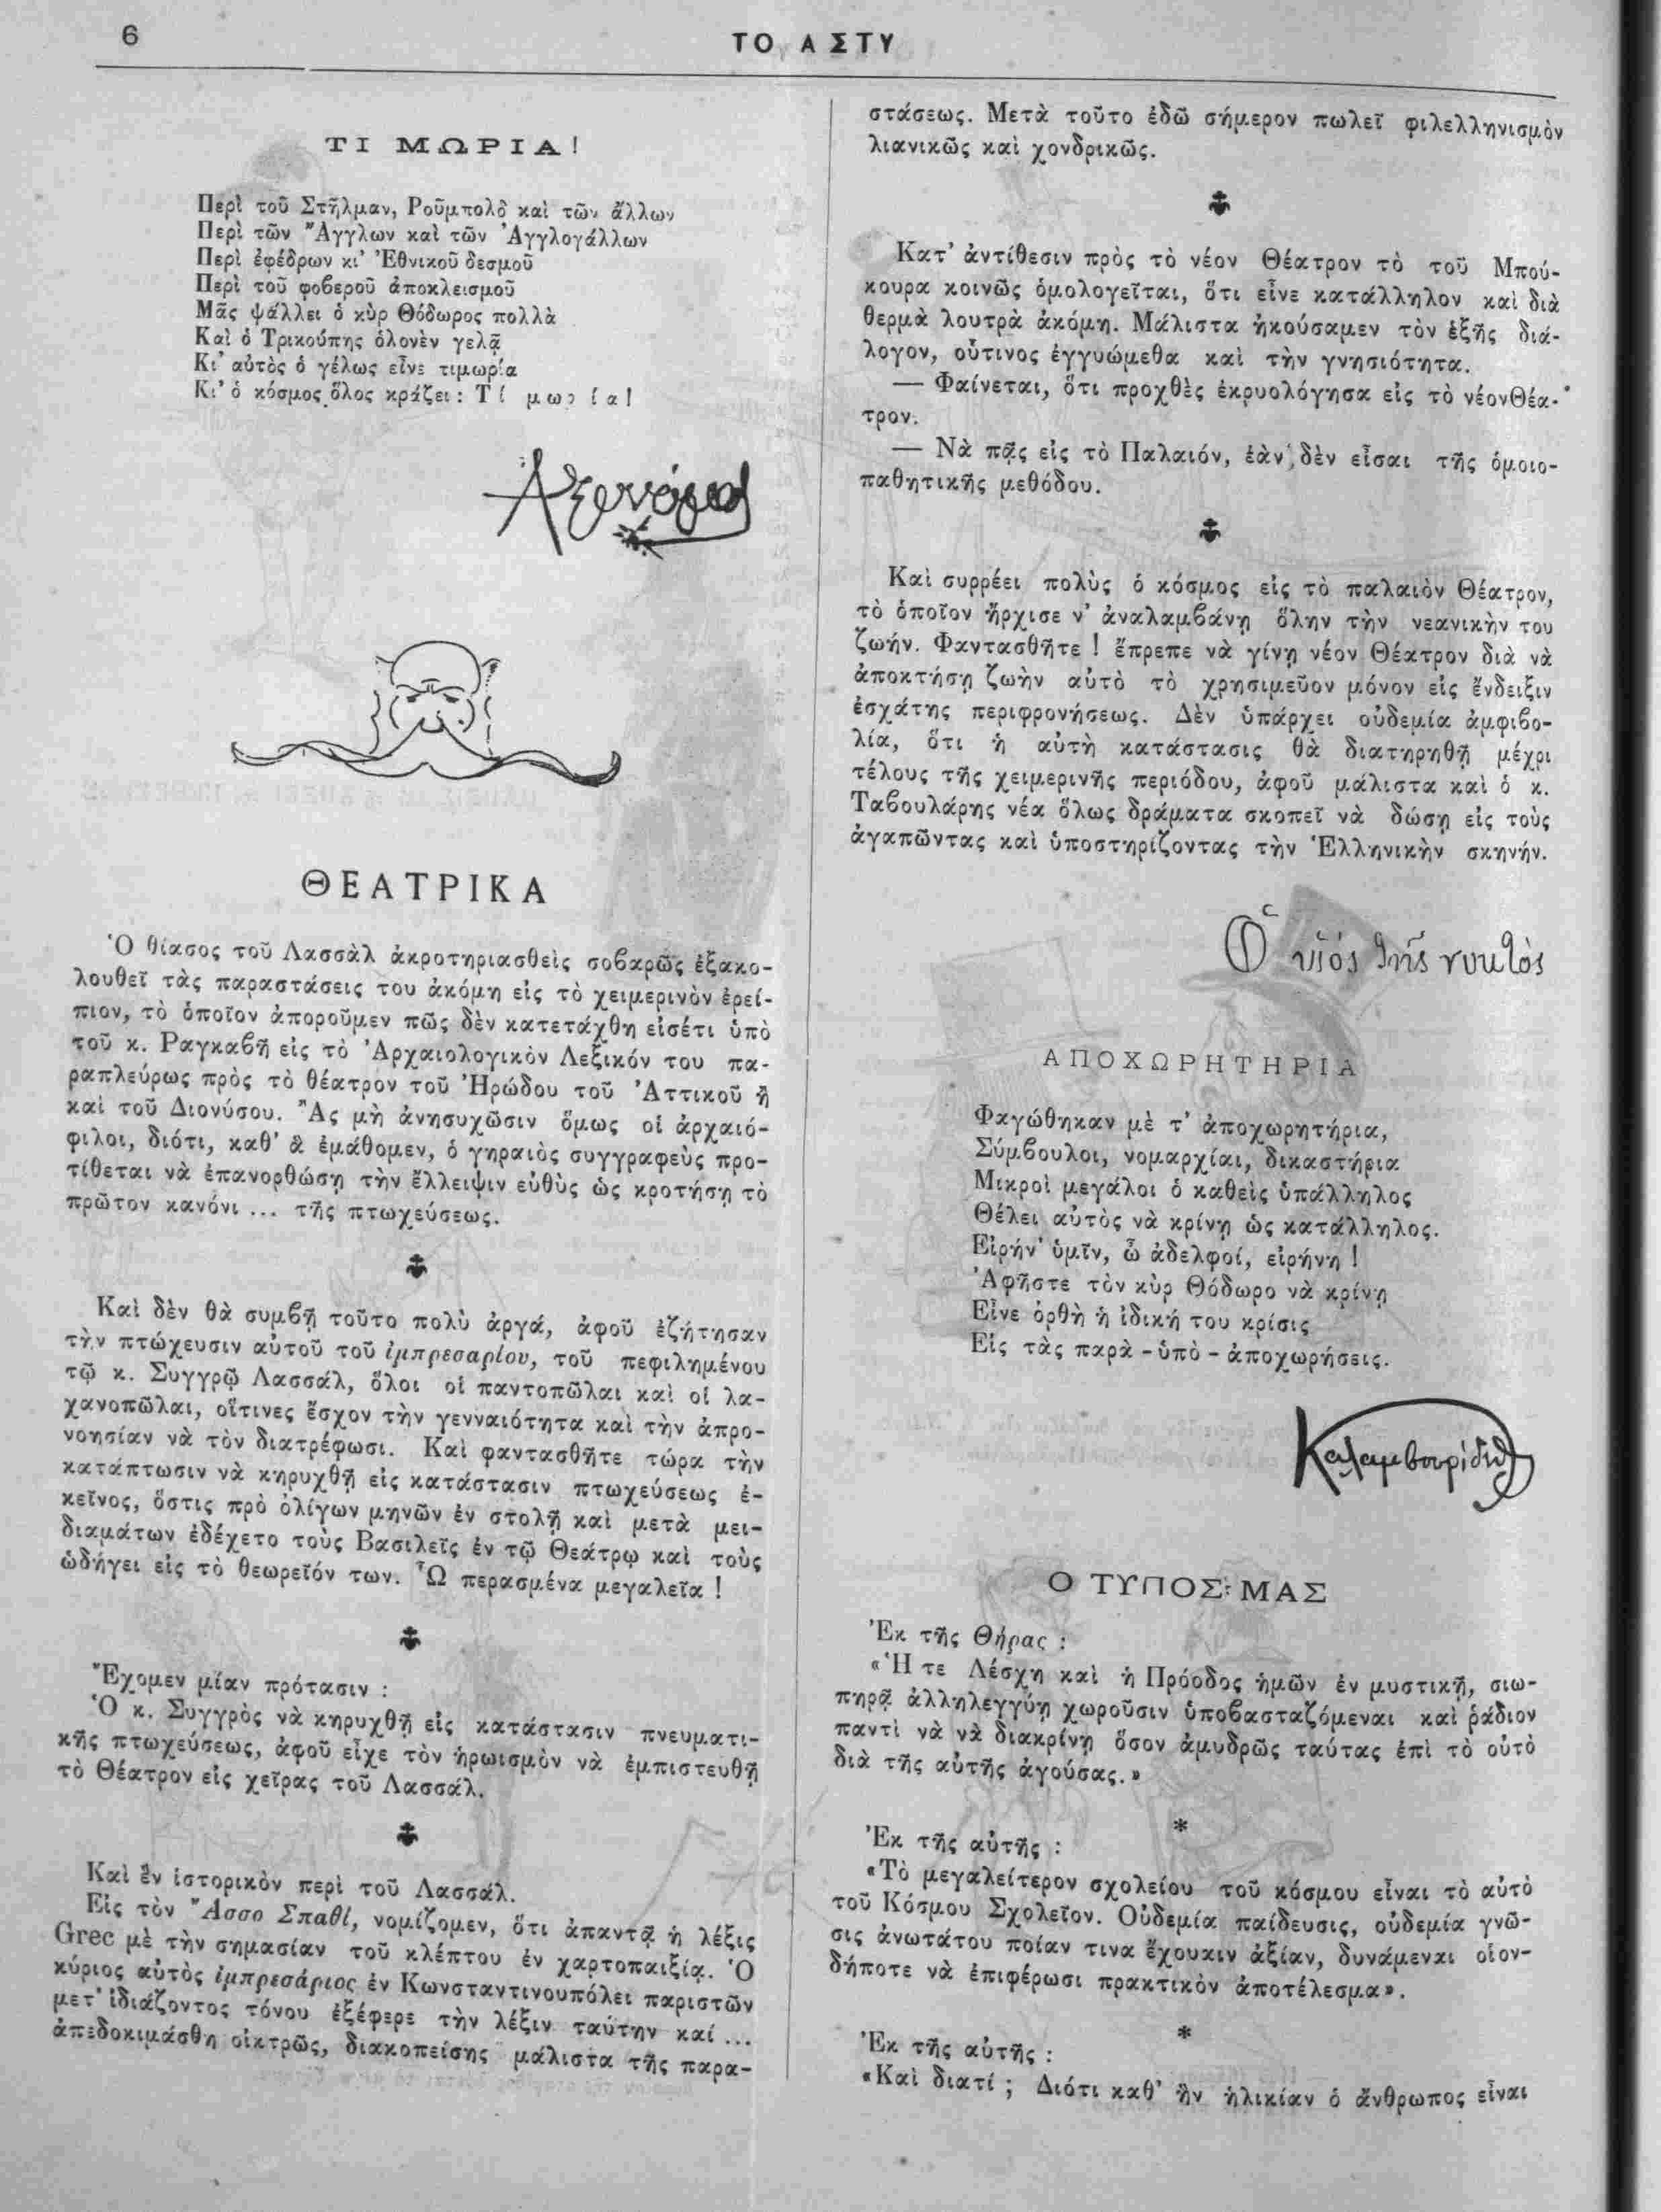 6
ΤΟ ΑΣΤΥ
ΤΙ ΜΩΡΙΑ!
Περὶ τοῦ Στῆλμαν, Ροῦμπολδ καὶ τῶν ἄλλων
Περὶ τῶν Ἄγγλων καὶ τῶν Ἀγγλογάλλων
Περὶ ἐφέδρων κι' Ἐθνικοῦ δεσμοῦ
Περὶ τοῦ φοβεροῦ ἀποκλεισμοῦ
Μᾶς ψάλλει ὁ κὺρ Θόδωρος πολλὰ
Καὶ ὁ Τρικούπης ὁλονὲν γελᾷ
Κι' αὐτὸς ὁ γέλως εἶνε τιμωρία
Κι' ὁ κόσμος ὅλος κράζει: Τί μωρία!
ΘΕΑΤΡΙΚΑ
Ὁ θίασος τοῦ Λασσὰλ ἀκροτηριασθεὶς σοβαρῶς ἐξακο-
λουθεῖ τὰς παραστάσεις του ἀκόμη εἰς τὸ χειμερινὸν ἐρεί-
πιον, τὸ ὁποῖον ἀποροῦμεν πῶς δὲν κατετάχθη εἰσέτι ὑπὸ
τοῦ κ. Ραγκαβῆ εἰς τὸ Ἀρχαιολογικὸν Λεξικόν του πα-
ραπλεύρως πρὸς τὸ θέατρον τοῦ Ἡρώδου τοῦ Ἀττικοῦ ἢ
καὶ τοῦ Διονύσου. Ἂς μὴ ἀνησυχῶσιν ὅμως οἱ ἀρχαιό-
φιλοι, διότι, καθ' ἃ ἐμάθομεν, ὁ γηραιὸς συγγραφεὺς προ-
τίθεται νὰ ἐπανορθώσῃ τὴν ἔλλειψιν εὐθὺς ὡς κροτήσῃ τὸ
πρῶτον κανόνι ... τῆς πτωχεύσεως.
Καὶ δὲν θὰ συμβῇ τοῦτο πολὺ ἀργά, ἀφοῦ ἐζήτησαν
τὴν πτώχευσιν αὐτοῦ τοῦ ἰμπρεσαρίου, τοῦ πεφιλημένου
τῷ κ. Συγγρῷ Λασσάλ, ὅλοι οἱ παντοπῶλαι καὶ οἱ λα-
χανοπῶλαι, οἵτινες ἔσχον τὴν γενναιότητα καὶ τὴν ἀπρο-
νοησίαν νὰ τὸν διατρέφωσι. Καὶ φαντασθῆτε τώρα τὴν
κατάπτωσιν νὰ κηρυχθῇ εἰς κατάστασιν πτωχεύσεως ἐ-
κεῖνος, ὅστις πρὸ ὀλίγων μηνῶν ἐν στολῇ καὶ μετὰ μει-
διαμάτων ἐδέχετο τοὺς Βασιλεῖς ἐν τῷ Θεάτρῳ καὶ τοὺς
ὡδήγει εἰς τὸ θεωρεῖόν των. Ὦ περασμένα μεγαλεῖα!
Ἔχομεν μίαν πρότασιν:
Ὁ κ. Συγγρὸς νὰ κηρυχθῇ εἰς κατάστασιν πνευματι-
κῆς πτωχεύσεως, ἀφοῦ εἶχε τὸν ἡρωισμὸν νὰ ἐμπιστευθῇ
τὸ Θέατρον εἰς χεῖρας τοῦ Λασσάλ.
Καὶ ἓν ἱστορικὸν περὶ τοῦ Λασσάλ.
Εἰς τὸν Ἄσσο Σπαθί, νομίζομεν, ὅτι ἀπαντᾷ ἡ λέξις
Grec μὲ τὴν σημασίαν τοῦ κλέπτου ἐν χαρτοπαιξίᾳ. Ὁ
κύριος αὐτὸς ἰμπρεσάριος ἐν Κωνσταντινουπόλει παριστῶν
μετ' ἰδιάζοντος τόνου ἐξέφερε τὴν λέξιν ταύτην καί ...
ἀπεδοκιμάσθη οἰκτρῶς, διακοπείσης μάλιστα τῆς παρα-
στάσεως. Μετὰ τοῦτο ἐδῶ σήμερον πωλεῖ φιλελληνισμὸν
λιανικῶς καὶ χονδρικῶς.
Κατ' ἀντίθεσιν πρὸς τὸ νέον Θέατρον τὸ τοῦ Μπού-
κουρα κοινῶς ὁμολογεῖται, ὅτι εἶνε κατάλληλον καὶ διὰ
θερμὰ λουτρὰ ἀκόμη. Μάλιστα ἠκούσαμεν τὸν ἑξῆς διά-
λογον, οὗτινος ἐγγυώμεθα καὶ τὴν γνησιότητα.
— Φαίνεται, ὅτι προχθὲς ἐκρυολόγησα εἰς τὸ νέονΘέα-
τρον.
— Νὰ πᾷς εἰς τὸ Παλαιόν, ἐὰν δὲν εἶσαι τῆς ὁμοιο-
παθητικῆς μεθόδου.
Καὶ συρρέει πολὺς ὁ κόσμος εἰς τὸ παλαιὸν Θέατρον,
τὸ ὁποῖον ἤρχισε ν' ἀναλαμβάνῃ ὅλην τὴν νεανικὴν του
ζωήν. Φαντασθῆτε! ἔπρεπε νὰ γίνῃ νέον Θέατρον διὰ νὰ
ἀποκτήσῃ ζωὴν αὐτὸ τὸ χρησιμεῦον μόνον εἰς ἔνδειξιν
ἐσχάτης περιφρονήσεως. Δὲν ὑπάρχει οὐδεμία ἀμφιβο-
λία, ὅτι ἡ αὐτὴ κατάστασις θὰ διατηρηθῇ μέχρι
τέλους τῆς χειμερινῆς περιόδου, ἀφοῦ μάλιστα καὶ ὁ κ.
Ταβουλάρης νέα ὅλως δράματα σκοπεῖ νὰ δώσῃ εἰς τοὺς
ἀγαπῶντας καὶ ὑποστηρίζοντας τὴν Ἑλληνικὴν σκηνήν.
Ὁ υἱὸς τῆς νυκτὸς
ΑΠΟΧΩΡΗΤΗΡΙΑ
Φαγώθηκαν μὲ τ' ἀποχωρητήρια,
Σύμβουλοι, νομαρχίαι, δικαστήρια
Μικροὶ μεγάλοι ὁ καθεὶς ὑπάλληλος
Θέλει αὐτὸς νὰ κρίνῃ ὡς κατάλληλος.
Εἰρήν' ὑμῖν, ὦ ἀδελφοί, εἰρήνη!
Ἀφῆστε τὸν κὺρ Θόδωρο νὰ κρίνῃ
Εἶνε ὀρθὴ ἡ ἰδική του κρίσις
Εἰς τὰς παρὰ-ὑπὸ-ἀποχωρήσεις.
Καλαμβουρίδης
Ο ΤΥΠΟΣ ΜΑΣ
Ἐκ τῆς Θήρας:
«Ἥ τε Λέσχη καὶ ἡ Πρόοδος ἡμῶν ἐν μυστικῇ, σιω-
πηρᾷ ἀλληλεγγύῃ χωροῦσιν ὑποβασταζόμεναι καὶ ῥάδιον
παντὶ νὰ νὰ διακρίνῃ ὅσον ἀμυδρῶς ταύτας ἐπὶ τὸ οὐτὸ
διὰ τῆς αὐτῆς ἀγούσας.»
*
Ἐκ τῆς αὐτῆς:
«Τὸ μεγαλείτερον σχολείου τοῦ κόσμου εἶναι τὸ αὐτὸ
τοῦ Κόσμου Σχολεῖον. Οὐδεμία παίδευσις, οὐδεμία γνῶ-
σις ἀνωτάτου ποίαν τινα ἔχουκιν ἀξίαν, δυνάμεναι οἱον-
δήποτε νὰ ἐπιφέρωσι πρακτικὸν ἀποτέλεσμα».
*
Ἐκ τῆς αὐτῆς:
«Καὶ διατί; Διότι καθ' ἣν ἡλικίαν ὁ ἄνθρωπος εἶναι